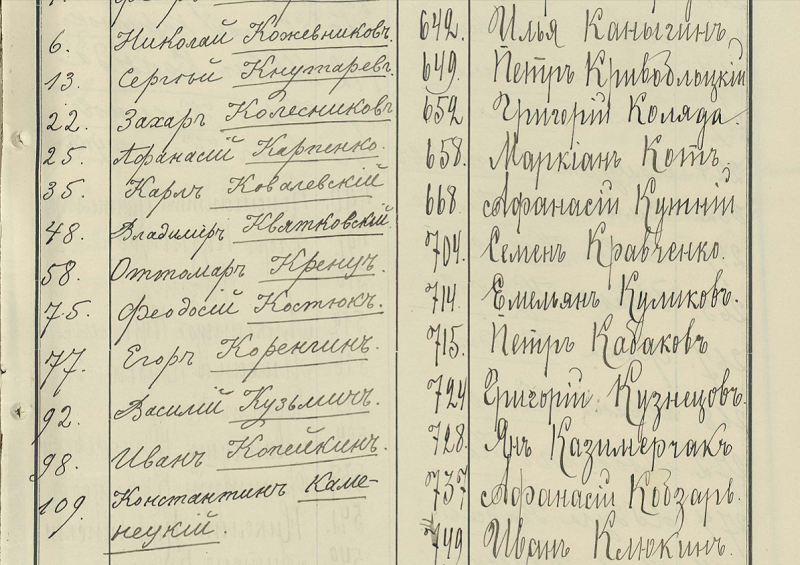 6. Николай Кожевниковъ.
13. Сергѣй Кнутаревъ.
22. Захаръ Колесниковъ
25. Афанасій Карпенко.
35. Карлъ Ковалевскій
48. Владиміръ Квятковскій
58. Оттомаръ Кренцъ.
75. Феодосій Костюкъ.
77. Егоръ Коренгинъ.
92. Василій Кузьмичъ.
98. Иванъ Копейкинъ.
109 Константинъ Каме-
нецкій.
642. Илья Каныгинъ
649. Петръ Кривоблоцкій
652 Григорій Коляда.
658. Маркіанъ Котъ.
668 Афанасій Кутній
704. Семенъ Кравченко.
714. Емельянъ Куликовъ.
715. Петръ Кабаковъ
724 Григорій Кузнецовъ.
728. Янъ Казимерчакъ
737 Афанасій Кобзарь.
749 Иванъ Клюкинъ.